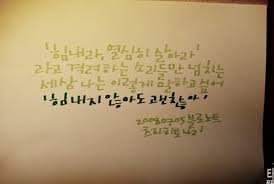 '힘내라, 열심히 살아라'
라고 격려하는 소리들만 넘치는
세상 나는 이렇게 말하고 싶어
'힘 내지 않아도 괜찮아'
2008.07.05
츠지히토나리